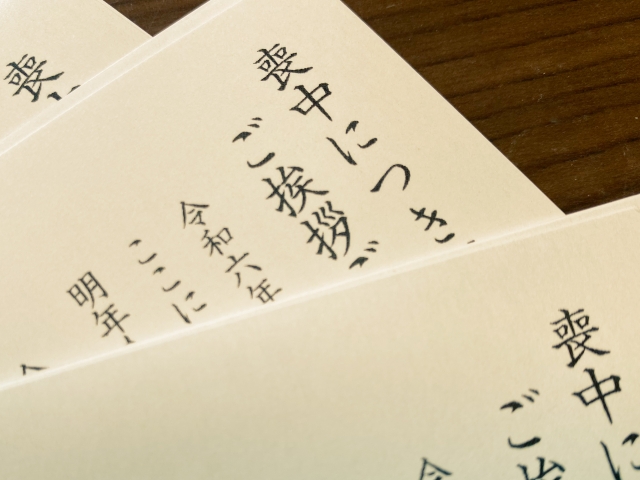 喪
喪中につき
ご挨拶ご
令和六年
ここに
明年
喪中に
ご挨